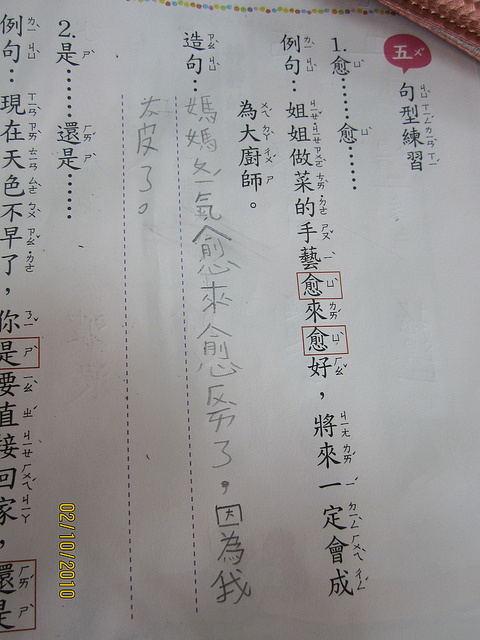 五 句型練習
1.愈……愈……
例句:姐姐做菜的手藝愈來愈好,將來一定會成
為大廚師。
造句:媽媽氣愈來愈了,因為我
太皮了。
2.是……還是……
例句:現在天色不早了,你是要直接回家,還是
02/10/2010